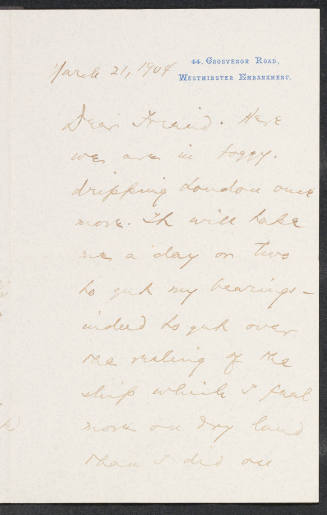 44, Grosvenor Road,
Westminster Embankment.
March 21, 1904
Dear Friend. Here
we are in foggy.
dripping London once
more. It will take
me a day or two
to get my bearings -
indeed to get over
the reeling of the
ship which I feel
more on dry land
than I did on